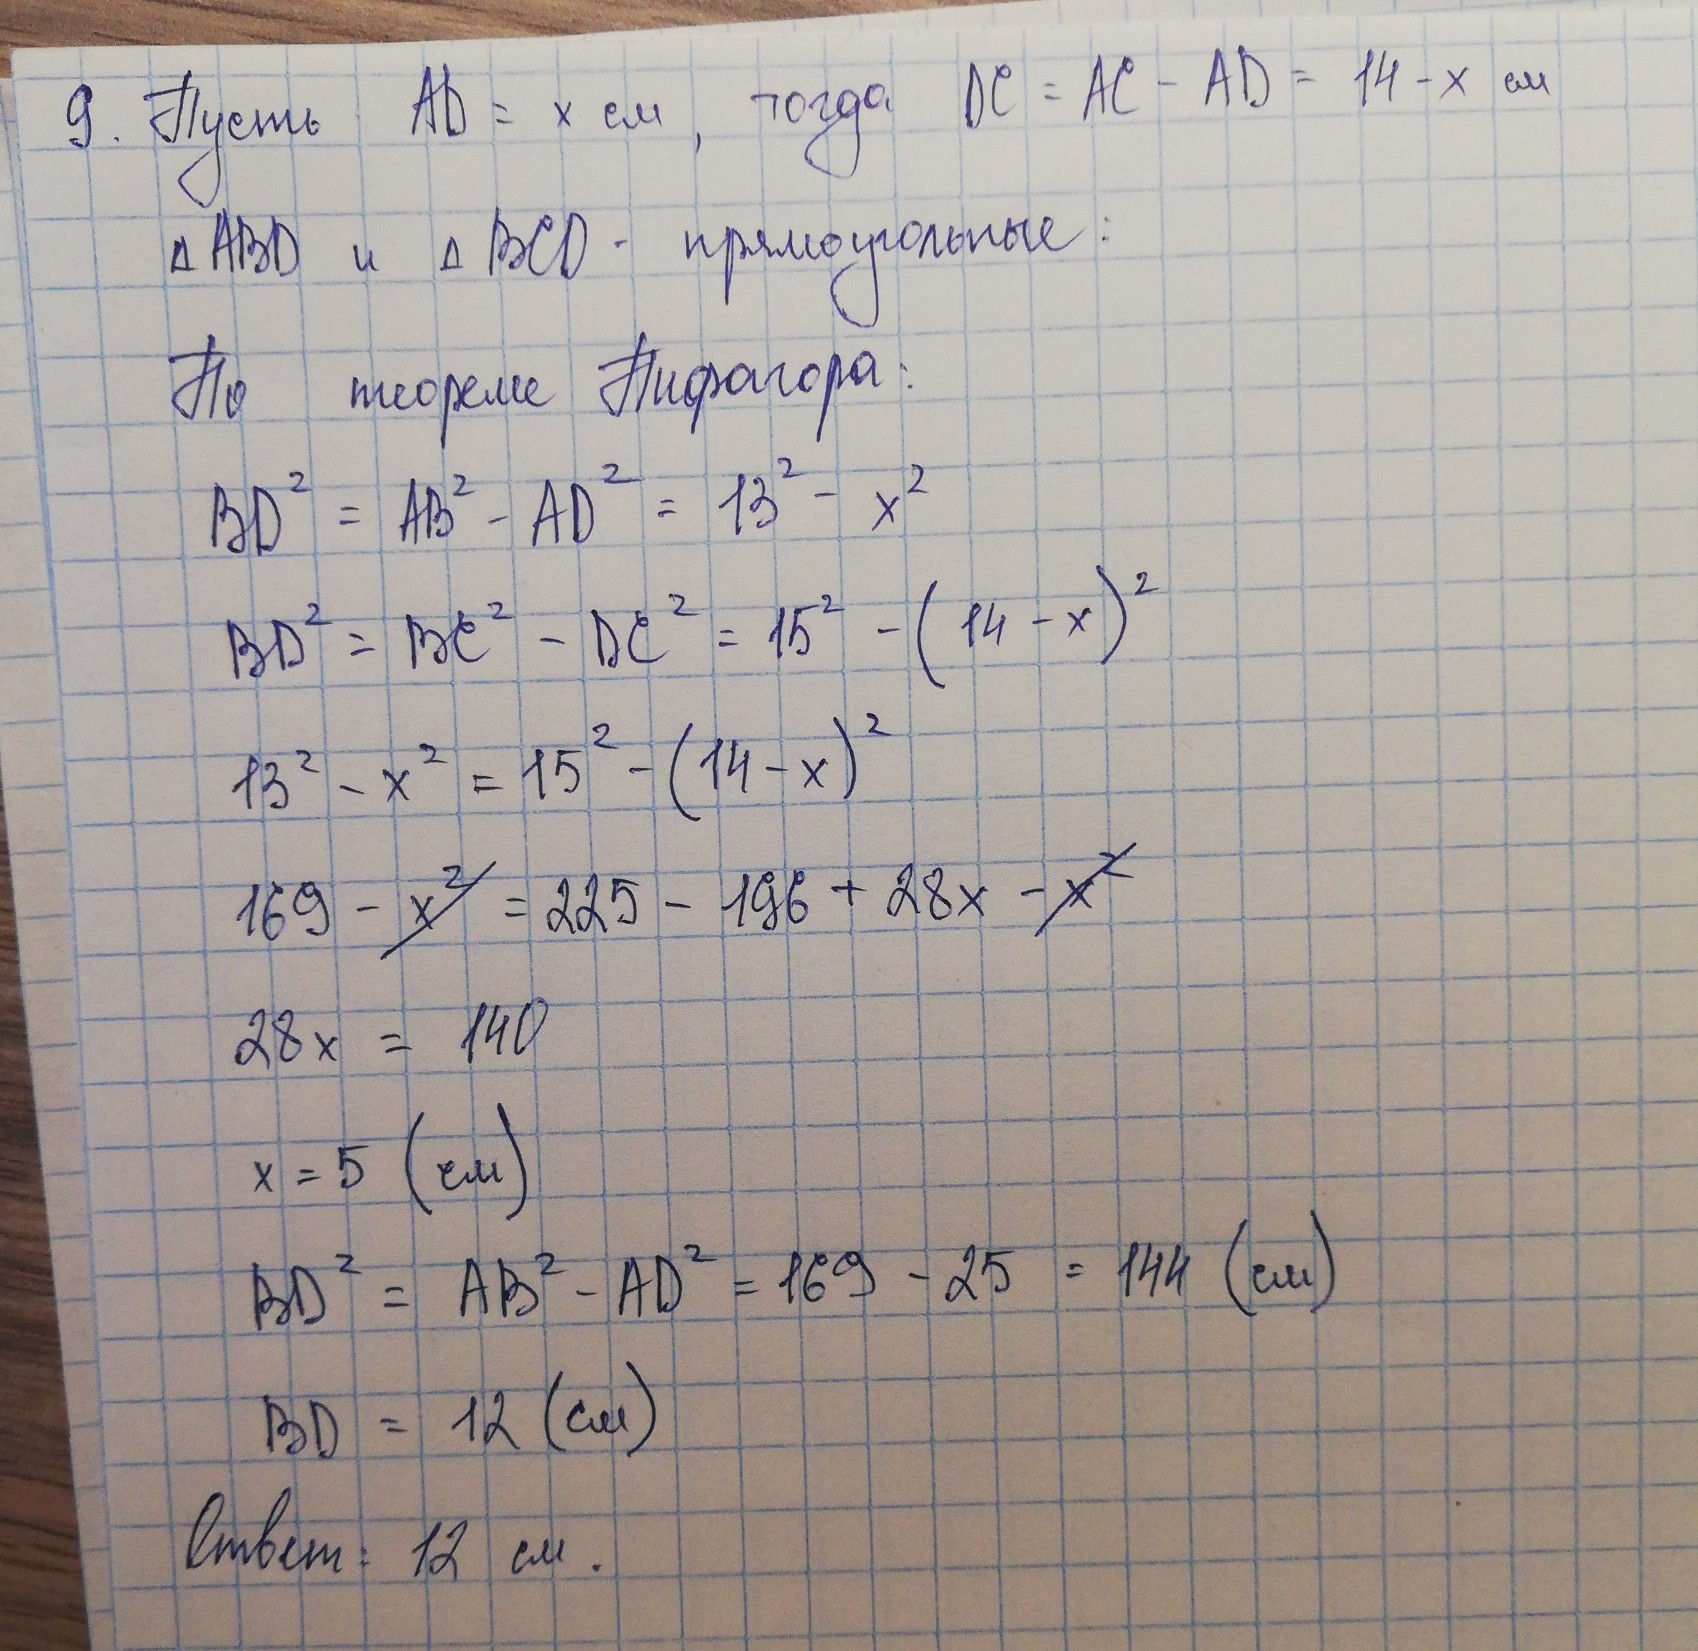 9. Пусть AD = x см, тогда DC = AC - AD = 14 - x см
Δ ABD и Δ BCD - прямоугольные:
По теореме Пифагора:
BD² = AB² - AD² = 13² - x²
BD² = BC² - DC² = 15² - (14 - x)²
13² - x² = 15² - (14 - x)²
169 - x² = 225 - 196 + 28x - x²
28x = 140
x = 5 (см)
BD² = AB² - AD² = 169 - 25 = 144 (см)
BD = 12 (см)
Ответ: 12 см.